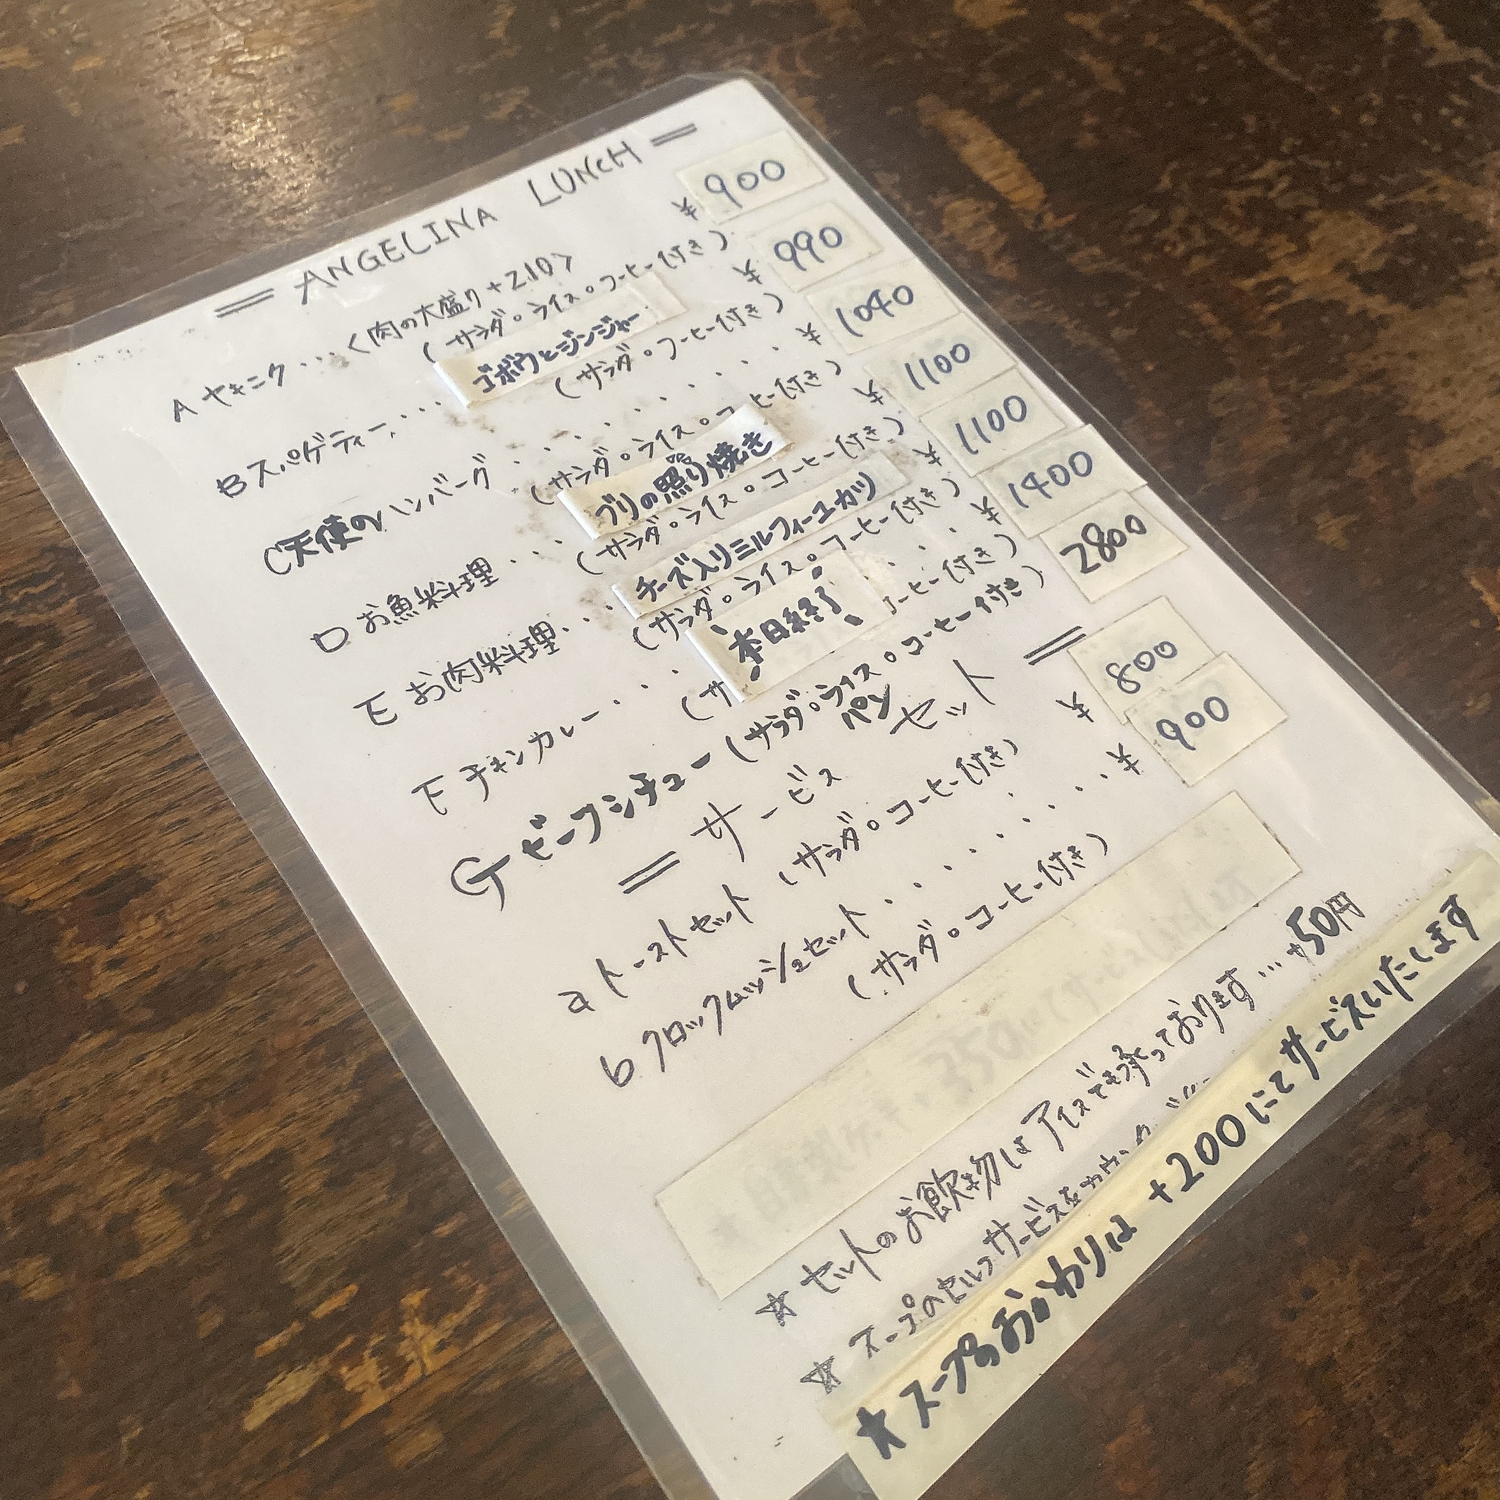 = ANGELINA LUNCH =
A ヤキニク...〈肉の大盛り+210〉 ¥900
(サラダ。ライス。コーヒー付き)
Bスパゲティー.... ゴボウとジンジャー ¥990
(サラダ。コーヒー付き)
C天使のハンバーグ.......... ¥1040
(サラダ。ライス。コーヒー付き)
Dお魚料理... ブリの照り焼き ¥1100
(サラダ。ライス。コーヒー付き)
Eお肉料理... チーズ入りミルフィーユカツ ¥1100
(サラダ。ライス。コーヒー付き)
Fチキンカレー... 本日終了 ... ¥1400
(サ コーヒー付き)
Gビーフシチュー(サラダ。ライス。コーヒー付き) 2800
パン
= サービスセット =
aトーストセット (サラダ。コーヒー付き) ¥800
bクロックムッシュセット....... ¥900
(サラダ。コーヒー付き)
350にてサービス
☆セットのお飲物はアイスでも承っております...+50円
☆スープのセルフサービスを
★スープのおかわりは +200にてサービスいたします